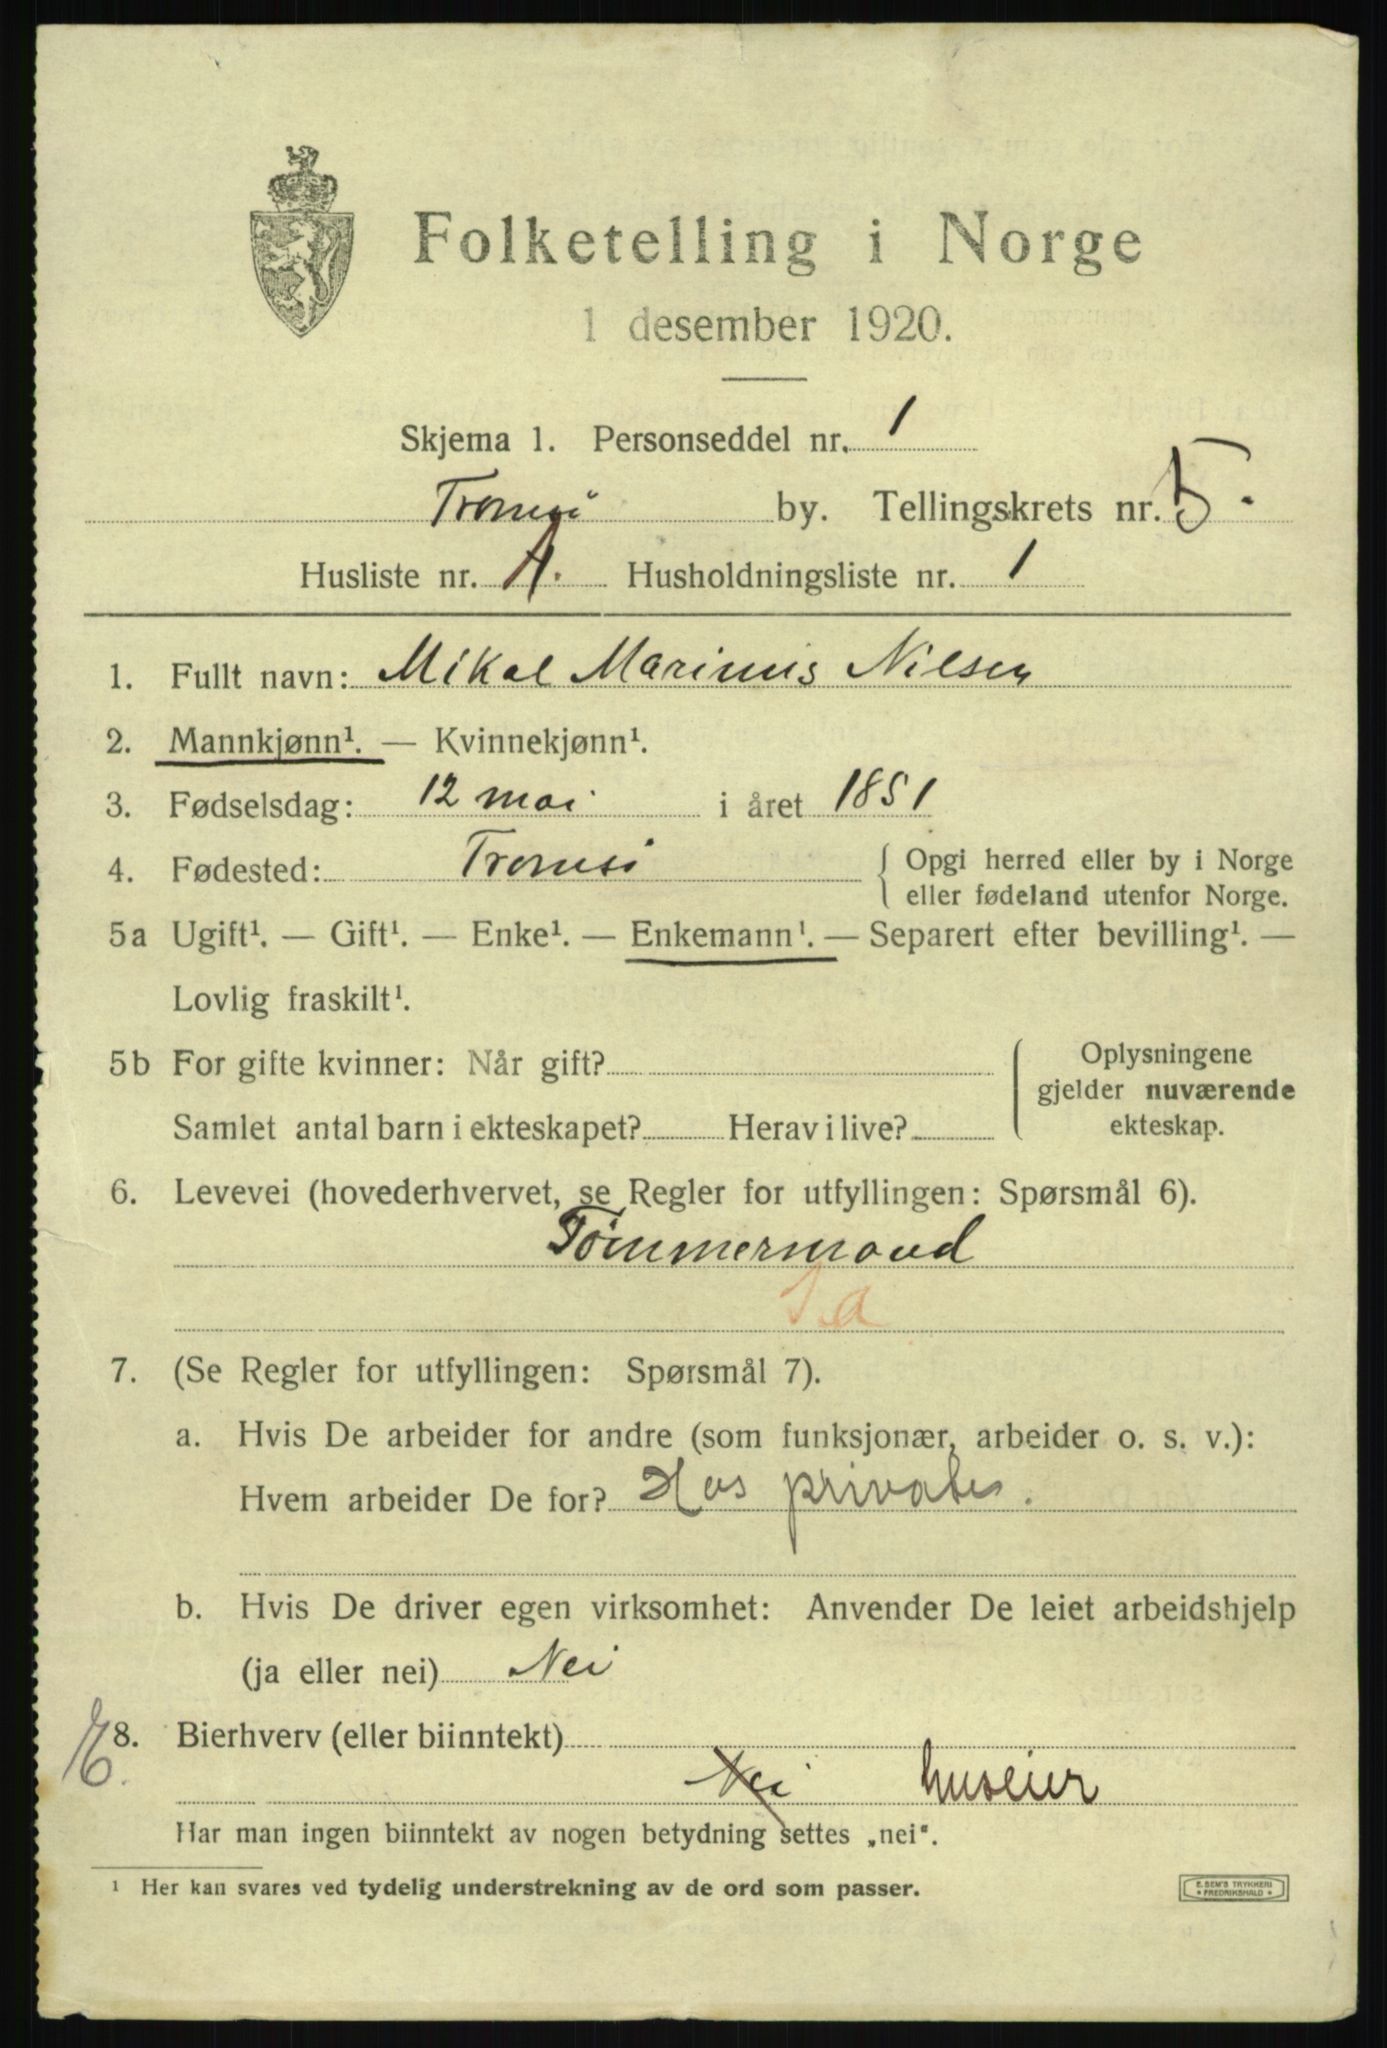 Folketelling i Norge
1 desember 1920.
Skjema 1. Personseddel nr. 1
Tromsö by. Tellingskrets nr. 5.
Husliste nr. Husholdningsliste nr. 1
1. Fullt navn: Mikal Marinius Nilsen
2. Mannkjønn¹. — Kvinnekjønn¹.
3. Fødselsdag: 12 mai i året 1851
4. Fødested: Tromsö { Opgi herred eller by i Norge
eller fødeland utenfor Norge.
5a Ugift¹. — Gift¹. — Enke¹. — Enkemann¹. — Separert efter bevilling¹. —
Lovlig fraskilt¹.
5b For gifte kvinner: Når gift?
Samlet antal barn i ekteskapet? Herav i live?
{ Oplysningene
gjelder nuværende
ekteskap.
6. Levevei (hovederhvervet, se Regler for utfyllingen: Spørsmål 6).
Tömmermand
1 a
7. (Se Regler for utfyllingen: Spørsmål 7).
a. Hvis De arbeider for andre (som funksjonær, arbeider o. s. v.):
Hvem arbeider De for? Hos private.
b. Hvis De driver egen virksomhet: Anvender De leiet arbeidshjelp
(ja eller nei) Nei
8. Bierhverv (eller biinntekt)
Nei huseier
Har man ingen biinntekt av nogen betydning settes „nei“.
¹ Her kan svares ved tydelig understrekning av de ord som passer.
E. SEM'S TRYKKERI
FREDRIKSHALD